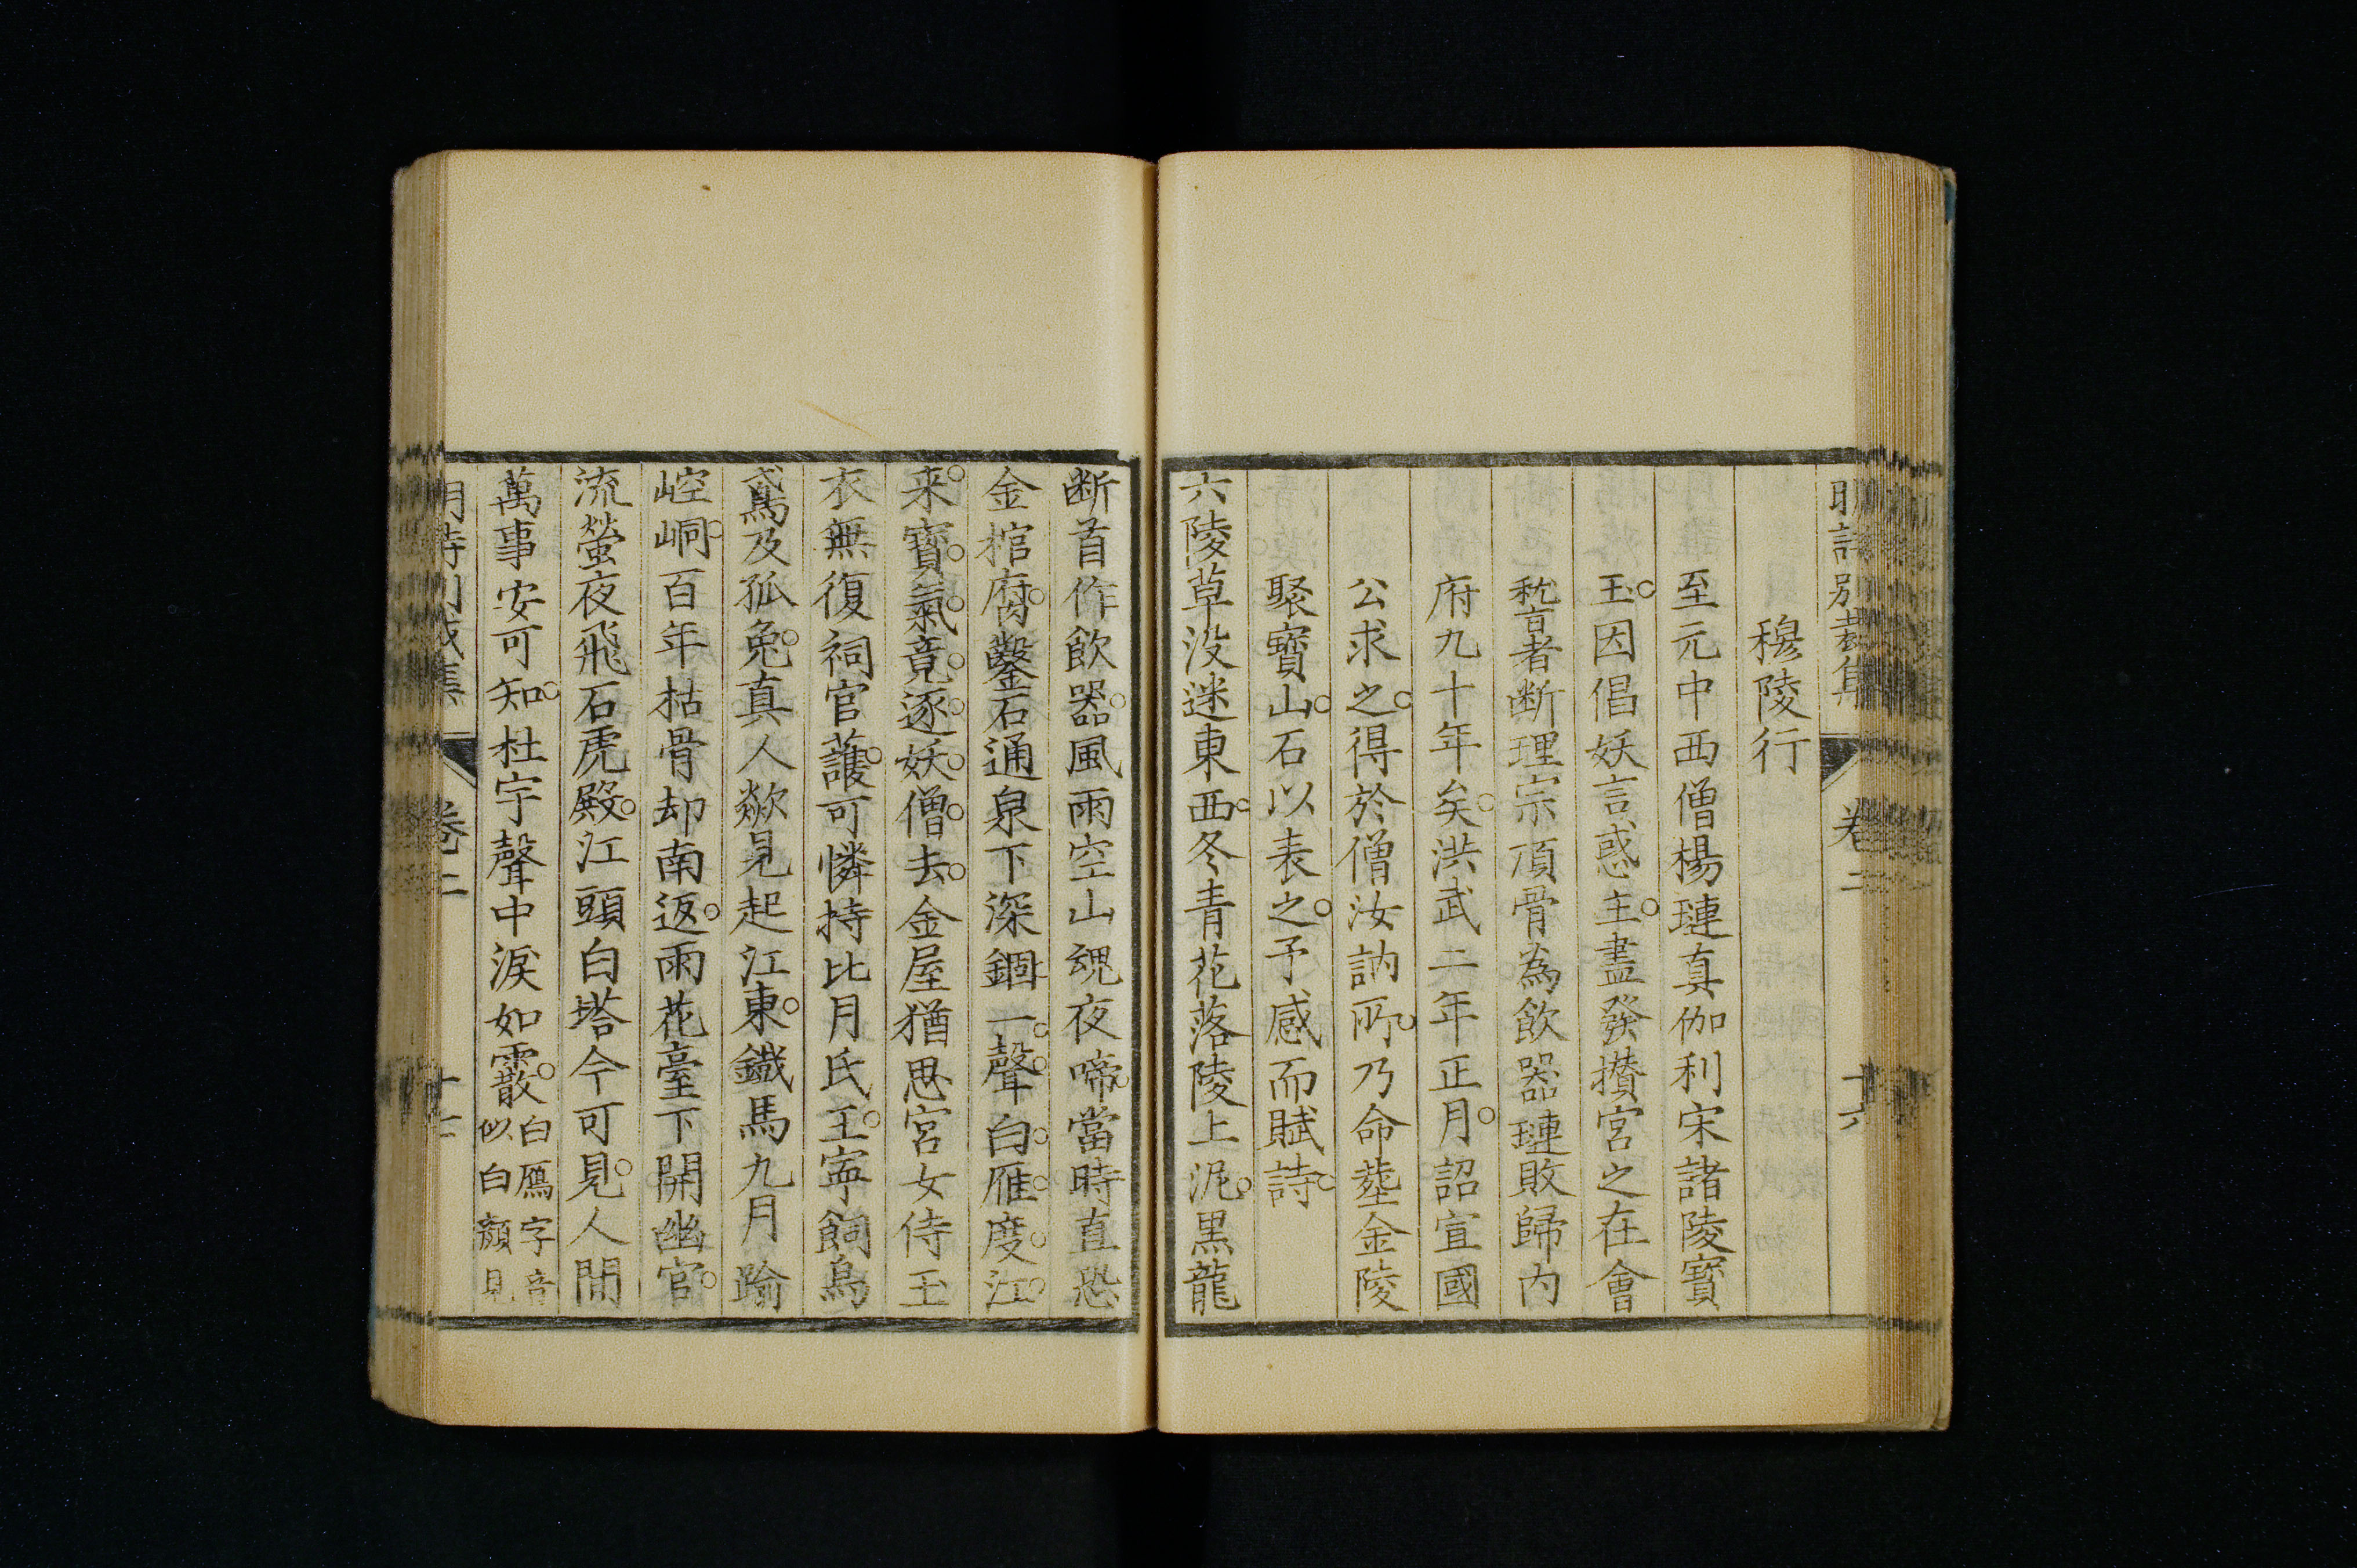 明詩別裁集 卷二 十六
穆陵行
至元中西僧楊璉真伽利宋諸陵寶
玉。因倡妖言惑主。盡發攢宮之在會
稽者断理宗頂骨為飲器璉敗歸內
府九十年矣。洪武二年正月。詔宣國
公求之。得於僧汝訥所。乃命塟金陵
聚寶山。石以表之。予感而賦詩。
六陵草没迷東西。冬青花落陵上泥。黒龍
断首作飲器。風雨空山魂夜啼。當時直恐
金棺腐。鑿石通泉下深錮。一聲白雁度江
来。寶氣竟逐妖僧去。金屋猶思宮女侍玉
衣無復祠官護。可憐持比月氏王。寧飼烏
鳶及孤兔。真人欻見起江東。鐵馬九月踰
崆峒。百年枯骨却南返。雨花臺下開幽宮。
流螢夜飛石虎殿。江頭白塔今可見。人間
萬事安可知。杜宇聲中淚如霰。白鴈字音
似白顏見
明詩別裁集 卷二